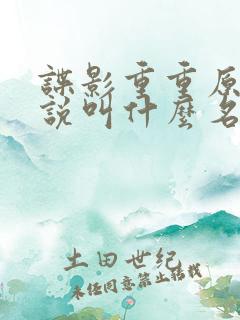 諜影重重原
說叫什麼名
土田世纪
未经同意禁止转载